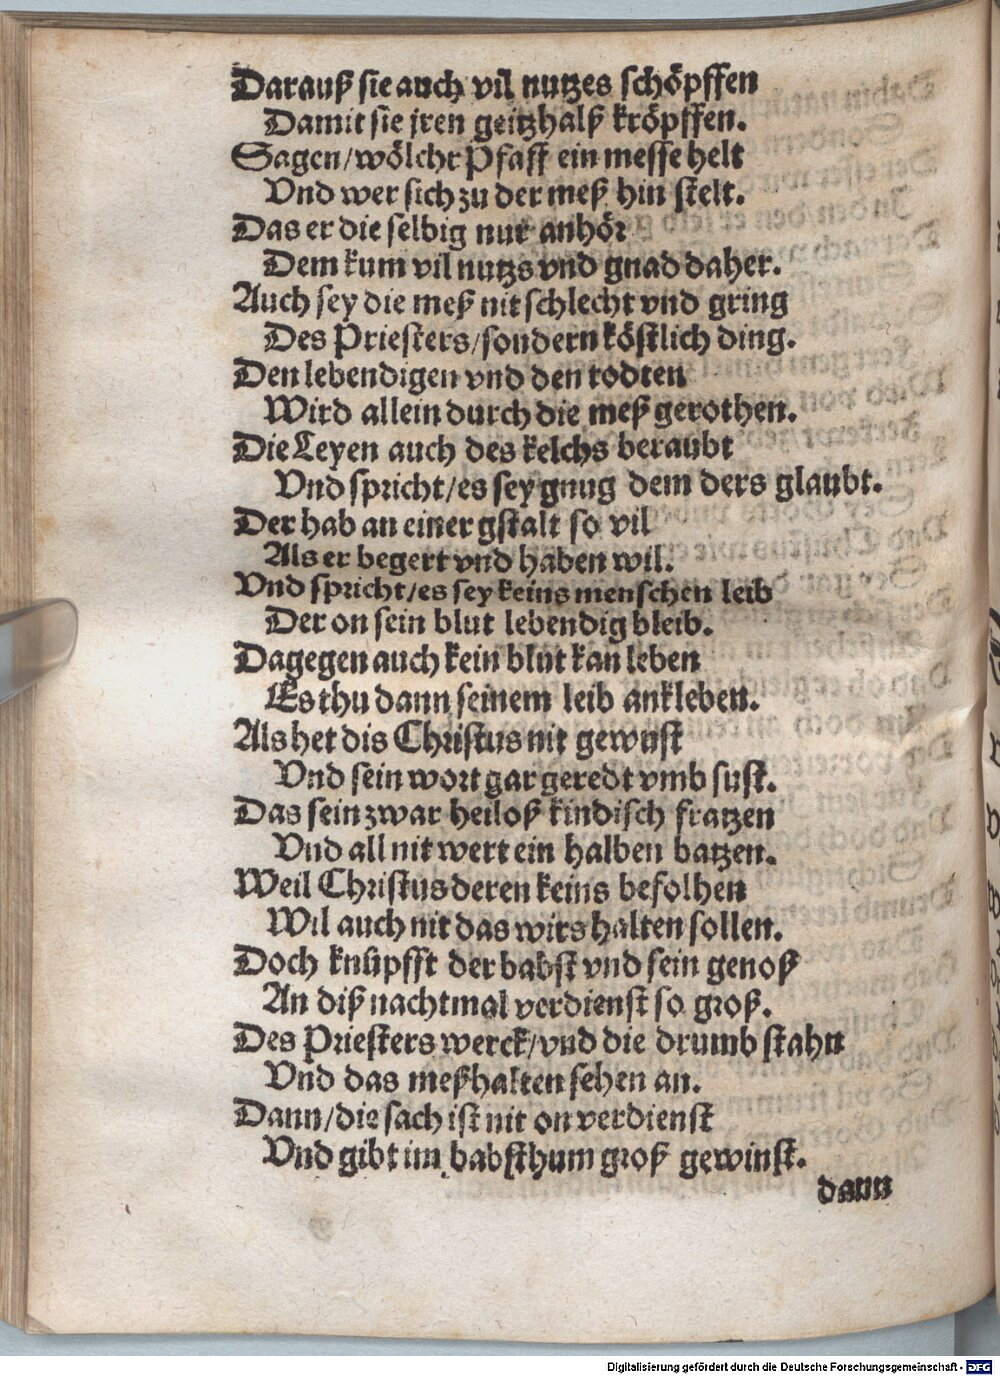 Darauß sie auch vil nutzes schöpffen
Damit sie jren geitzhalß kröpffen.
Sagen/wölchr Pfaff ein messe helt
Vnd wer sich zu der meß hin stelt.
Das er die selbig nur anhör
Dem kum vil nutzs vnd gnad daher.
Auch sey die meß nit schlecht vnd gring
Des Priesters/sondern köstlich ding.
Den lebendigen vnd den todten
Wird allein durch die meß gerothen.
Die Leyen auch des kelchs beraubt
Vnd spricht/es sey gnug dem ders glaubt.
Der hab an einer gstalt so vil
Als er begert vnd haben wil.
Vnd spricht/es sey keins menschen leib
Der on sein blut lebendig bleib.
Dagegen auch kein blut kan leben
Es thu dann seinem leib ankleben.
Als het dis Christus nit gewust
Vnd sein wort gar geredt vmb sust.
Das sein zwar heiloß kindisch fratzen
Vnd all nit wert ein halben batzen.
Weil Christus deren keins befolhen
Wil auch nit das wirs halten sollen.
Doch knüpfft der babst vnd sein genoß
An diß nachtmal verdienst so groß.
Des Priesters werck/vnd die drumb stahn
Vnd das meßhalten sehen an.
Dann/die sach ist nit on verdienst
Vnd gibt im babsthum groß gewinst.
dann
Digitalisierung gefördert durch die Deutsche Forschungsgemeinschaft - DFG